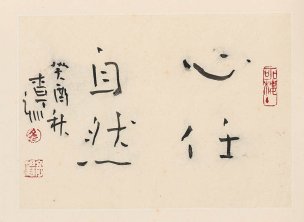 心任
自然
癸酉秋